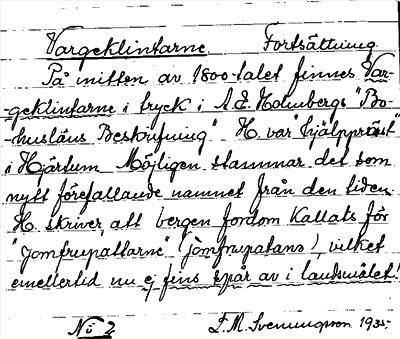 Vargeklintarne. Fortsättning
På mitten av 1800-talet finnes Var-
-geklintarne i tryck i A. E. Holmbergs "Bo-
-husläns Beskrifning". H. var "hjälppräst"
i Hjärtum. Möjligen stammar det som
nytt förefallande namnet från den tiden.
H. skriver, att bergen fordom kallats för
"Jomfrupattarne" (jomfrupatans), vilket
emellertid nu ej fins spår av i landsmålet!
No 2 E. M. Svenungson 1935.